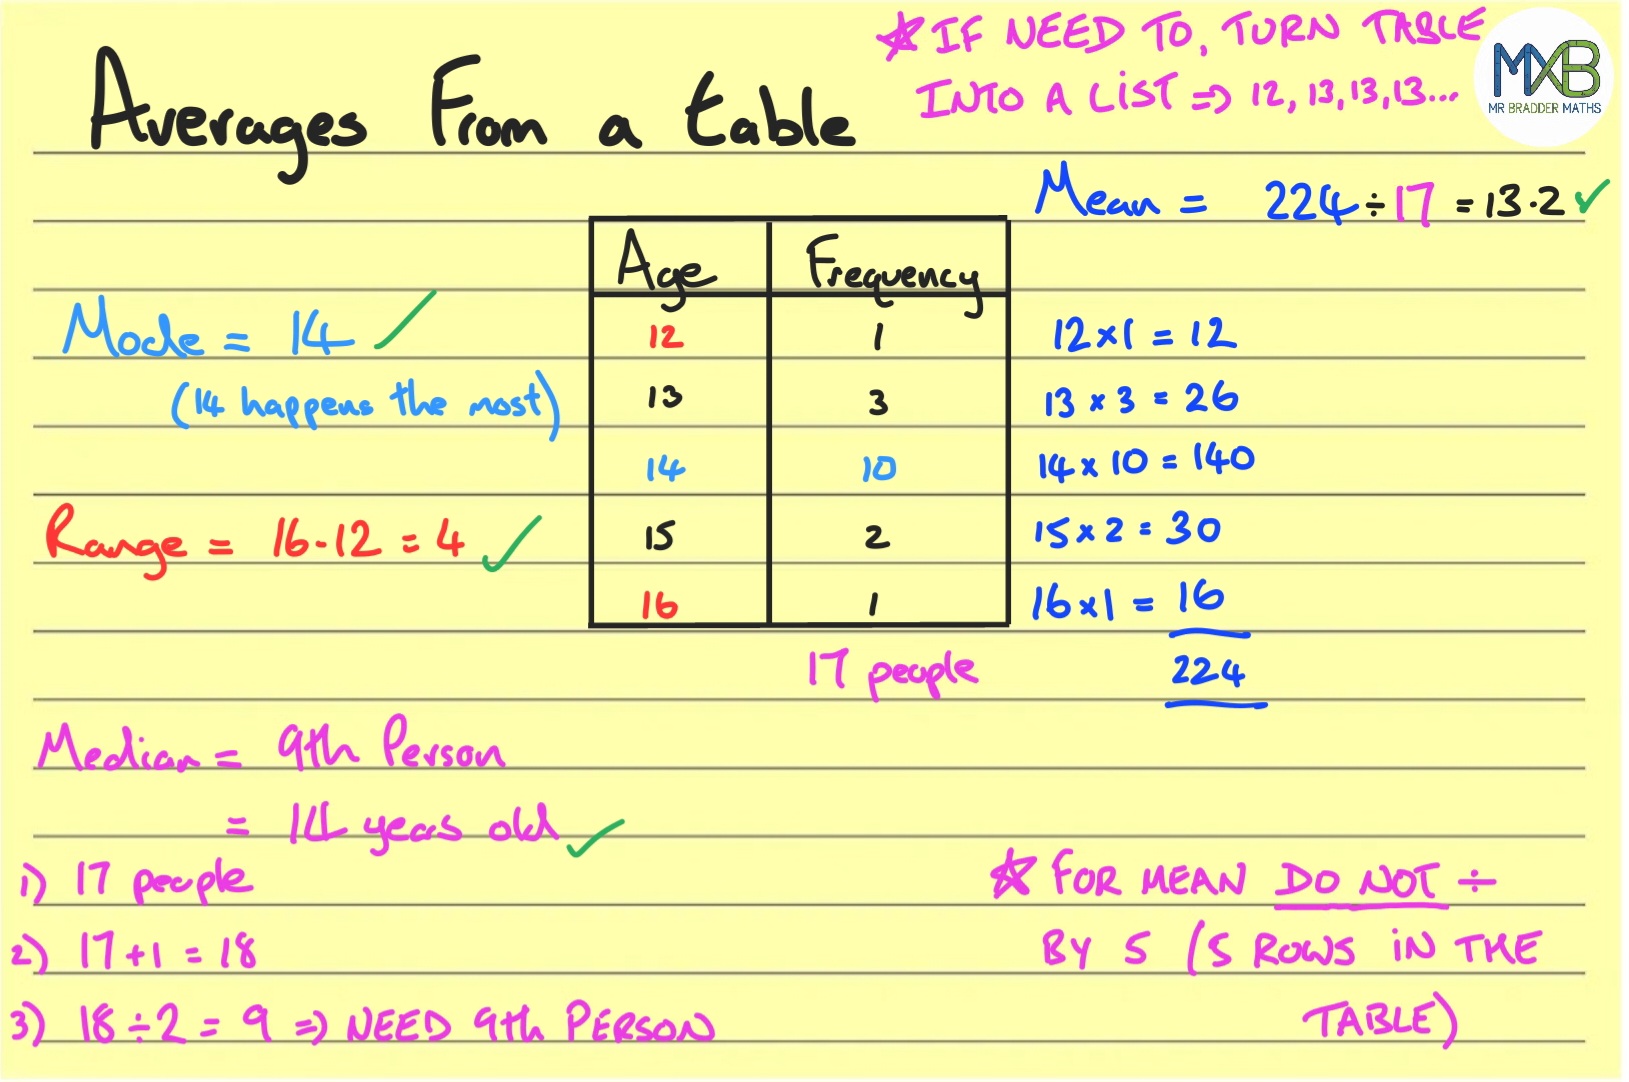 Averages From a table
★ IF NEED TO, TURN TABLE
INTO A LIST ⇒ 12, 13, 13, 13...
MXB
MR BRADDER MATHS
Mean = 224 ÷ 17 = 13.2 ✓
Age Frequency
12 1 12 × 1 = 12
13 3 13 × 3 = 26
14 10 14 × 10 = 140
15 2 15 × 2 = 30
16 1 16 × 1 = 16
17 people 224
Mode = 14 ✓
(14 happens the most)
Range = 16 - 12 = 4 ✓
Median = 9th Person
= 14 years old ✓
1) 17 people
2) 17 + 1 = 18
3) 18 ÷ 2 = 9 ⇒ NEED 9th PERSON
★ FOR MEAN DO NOT ÷
BY 5 (5 ROWS IN THE
TABLE)